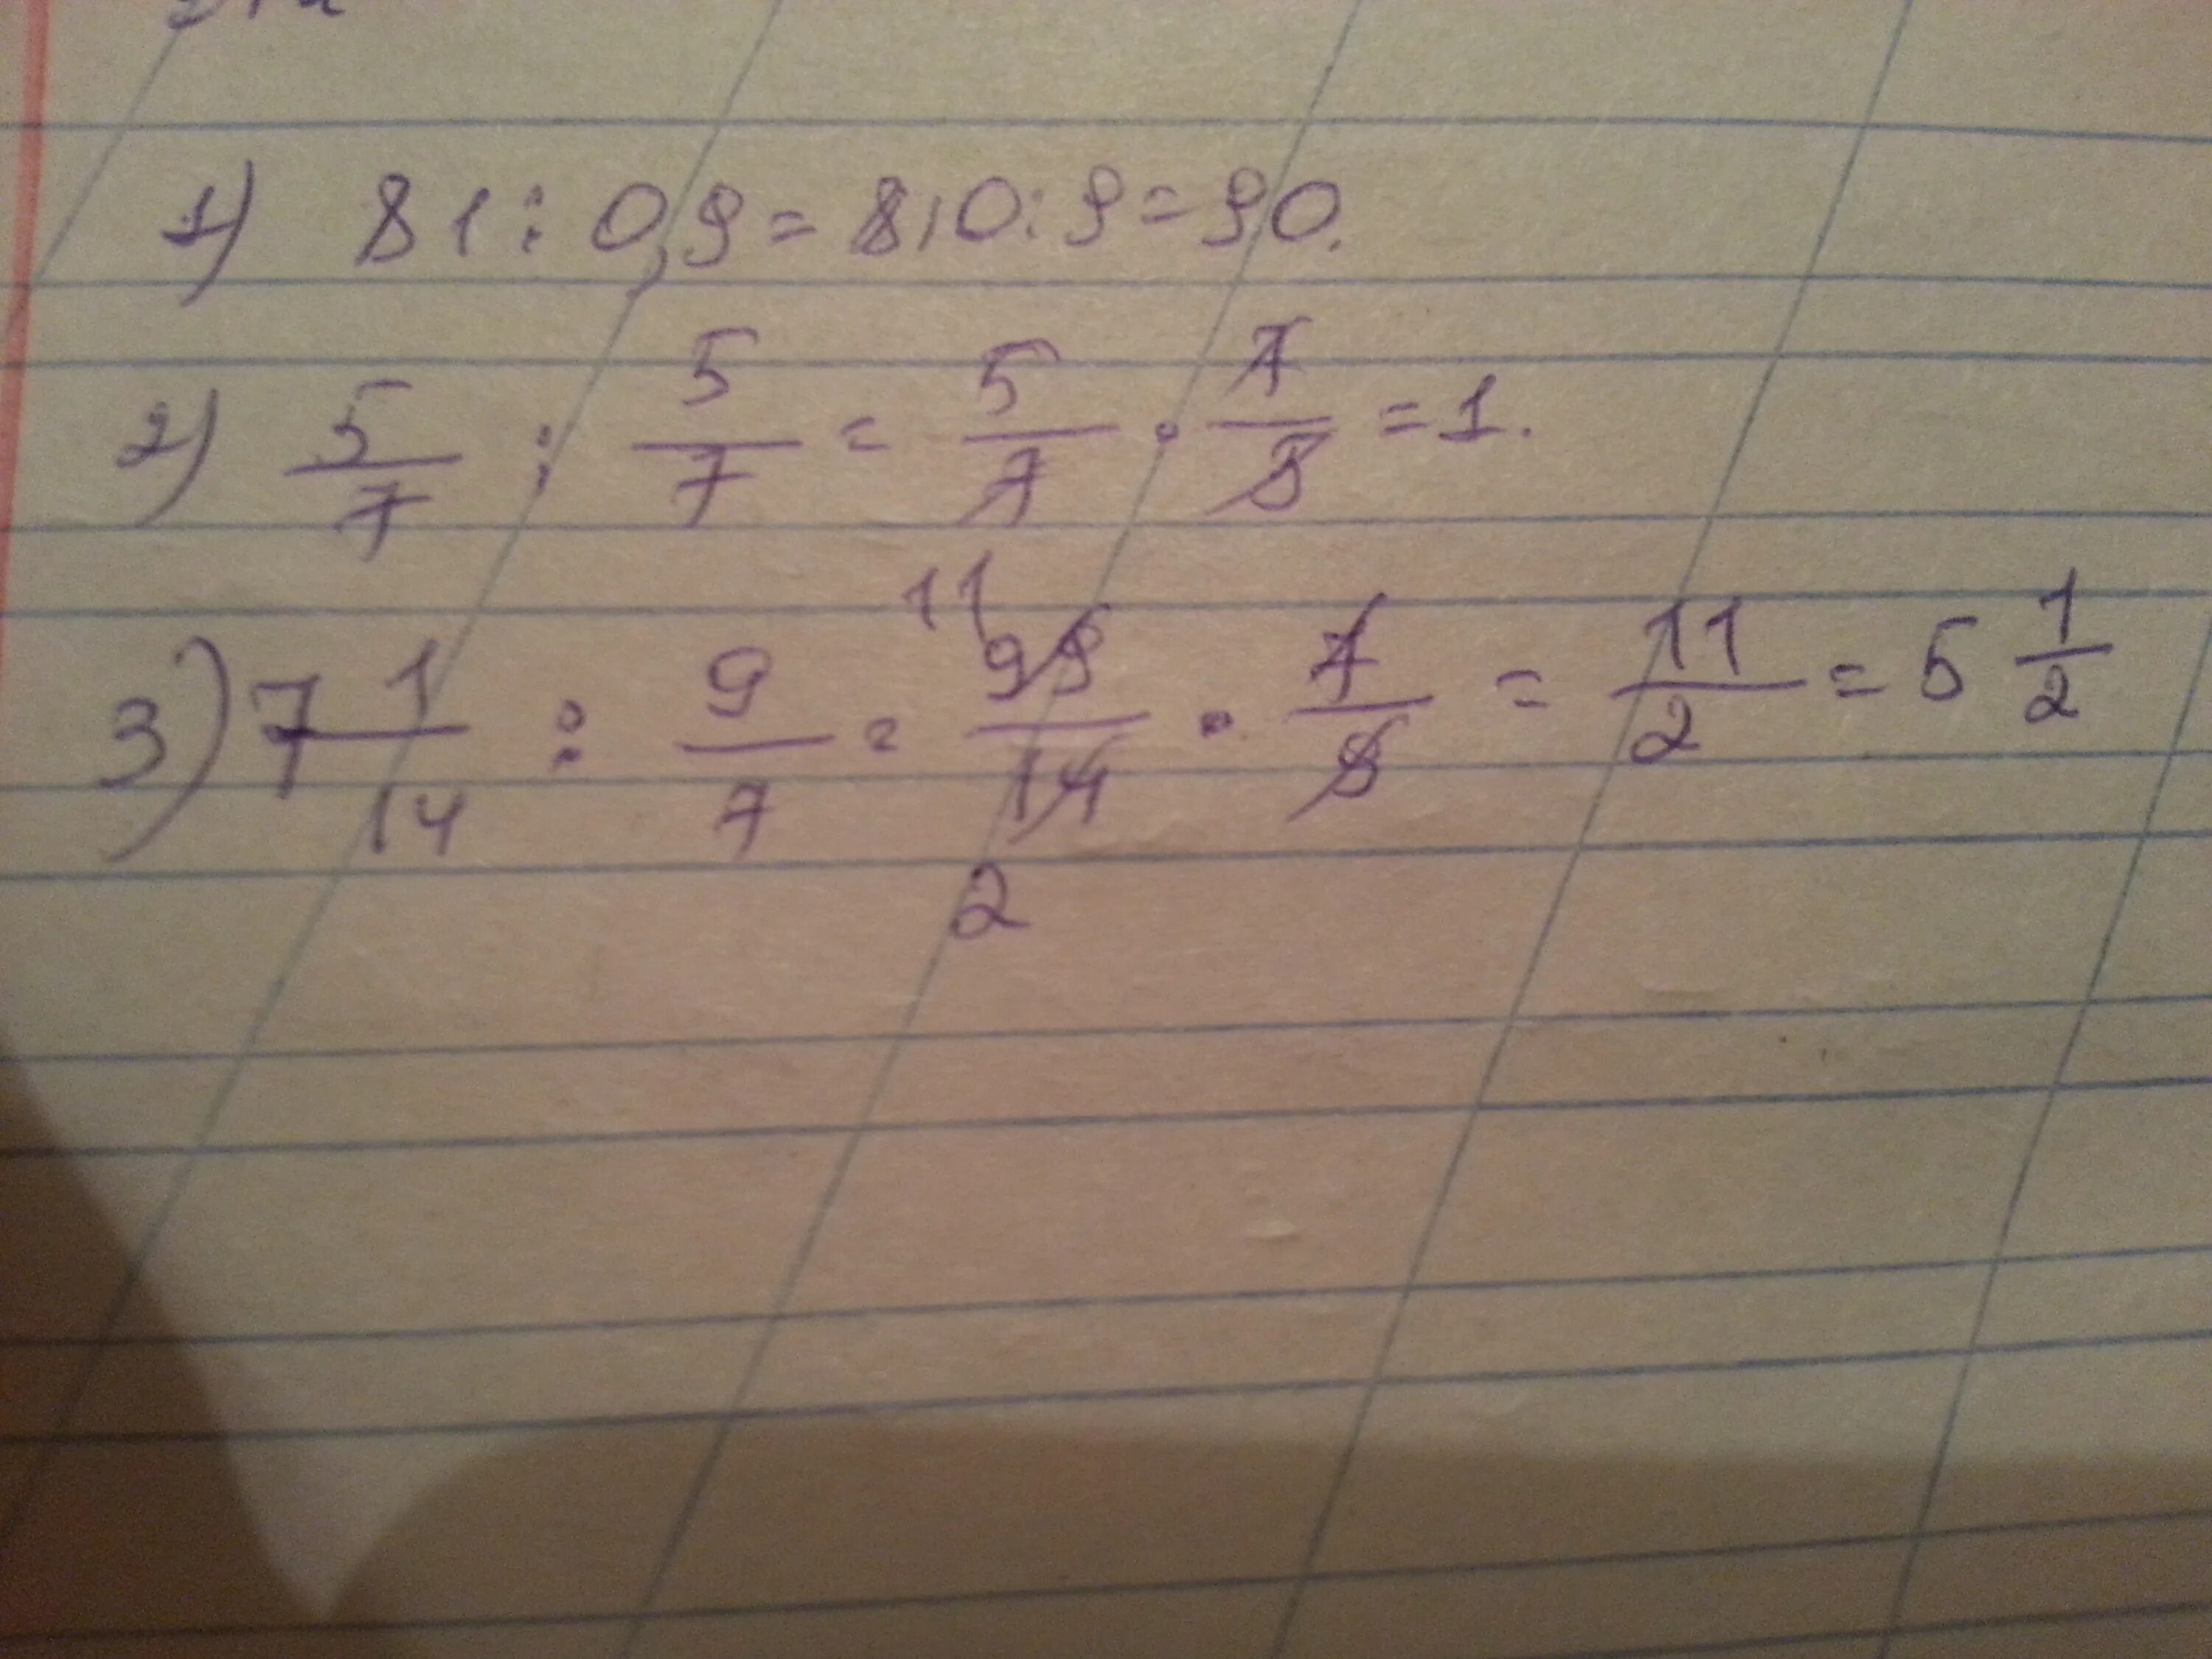 1) 81 : 0,9 = 810 : 9 = 90.
2) 5/7 : 5/7 = 5/7 · 7/5 = 1.
3) 7 1/14 : 9/7 = 11 99/14 2 · 7/9 = 11/2 = 5 1/2